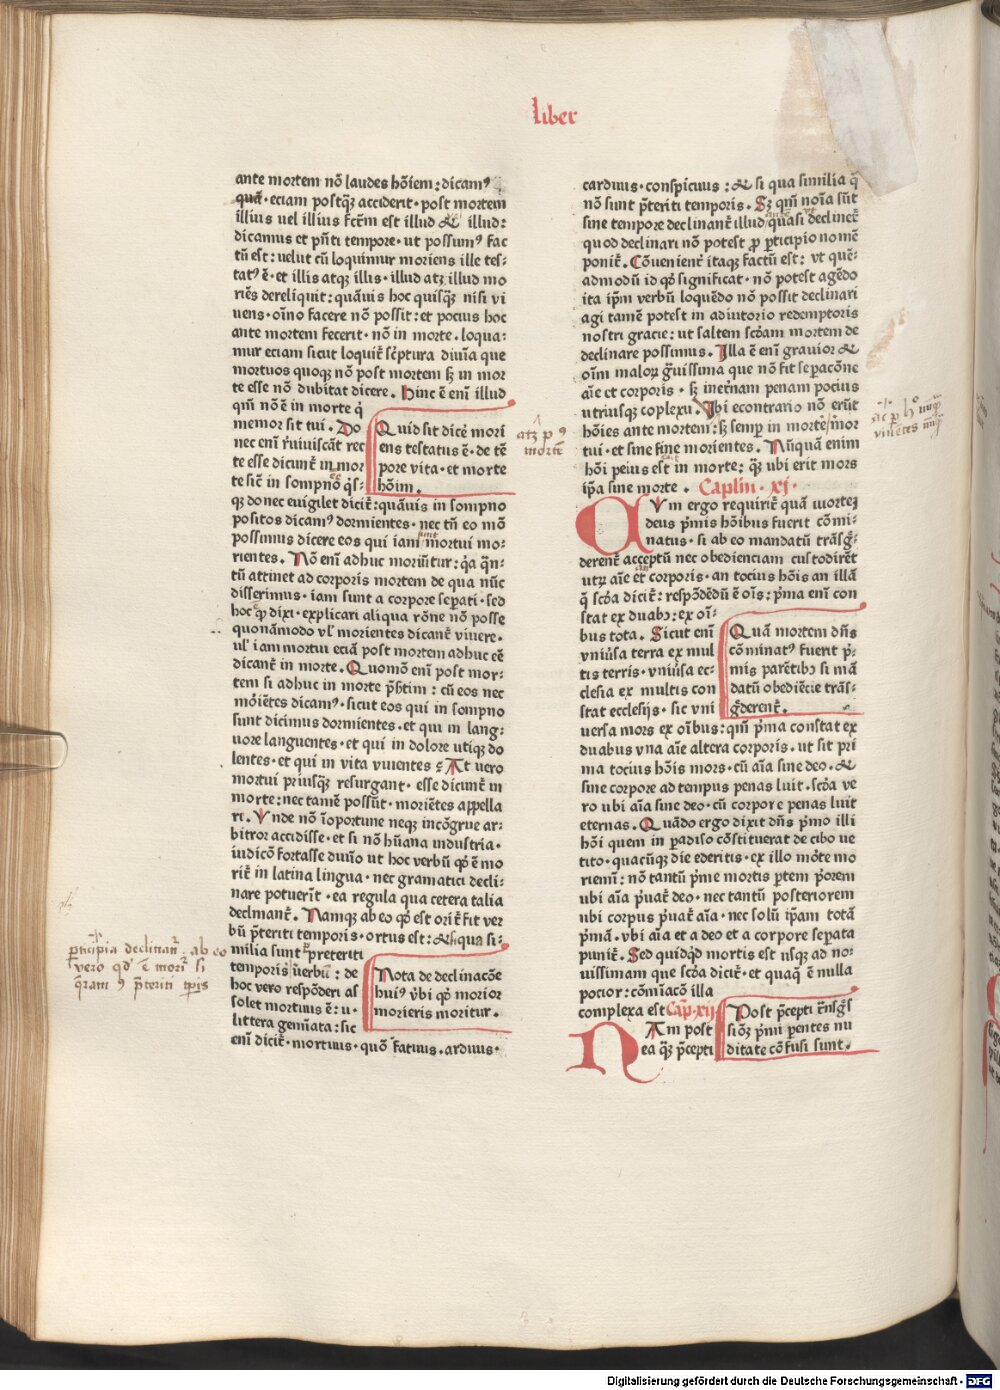 liber
ante mortem nō laudes hōiem : dicamꝰ
quā · eciam postqꝫ acciderit · post mortem
illius uel illius fcm̄ est illud & illud :
dicamus et pn̄ti tempore · ut possumꝰ fac
tū est : uelut cū loquimur moriens ille tes-
tatꝰ ē · et illis atqꝫ illis · illud atqꝫ illud mo
riēs dereliquit : quāuis hoc quisqꝫ nisi vi
uens · oīno facere nō possit : et pocius hoc
ante mortem fecerit · nō in morte · loqua-
mur eciam sicut loquit̄ sc̄ptura diuīa que
mortuos quoqꝫ nō post mortem sꝫ in mor
te esse nō dubitat dicere . Hinc ē enī illud
qm̄ nō ē in morte q̄
memor sit tui . Do
nec enī r̄uiuiscāt rec
te esse dicunt̄ in mor
te sic̄ in sompno q̄s-
Quid sit dicē mori
ens testatus ē · de tē
pore vita · et morte
hōim .
atqꝫ pꝰ
mortē
qꝫ donec euigilet dicit̄ : quāuis in sompno
positos dicamꝰ dormientes · nec tn̄ eo mō
possimus dicere eos qui iam mortui mo-
rientes . Nō enī adhuc moriūtur : q̄a q̄n-
tū attinet ad corporis mortem de qua nūc
disserimus · iam sunt a corpore sepati · sed
hoc ē qꝫ dixi · explicari aliqua rōne nō posse
quonāmodo vl̓ morientes dicant̄ viuere ·
ul̓ iam mortui eciā post mortem adhuc eē
dicant̄ in morte . Quomō enī post mor-
tem si adhuc in morte phētim : cū eos nec
mōiētes dicamꝰ · sicut eos qui in sompno
sunt dicimus dormientes · et qui in lang-
uore languentes · et qui in dolore utiqꝫ do
lentes · et qui in vita viuentes ; At vero
mortui priusqꝫ resurgant · esse dicunt̄ in
morte : nec tamē possūt · moriētes appella
ri . Vnde nō īoportune neqꝫ incōgrue ar-
bitror accidisse · et si nō hūana industria ·
iudicō fortasse diuīo ut hoc verbū qd̓ ē mo
rit̄ in latina lingua · nec gramatici decli-
nare potuerīt · ea regula qua cetera talia
declinant̄ . Namqꝫ ab eo qd̓ est orit̄ fit ver
bū p̄teriti temporis · ortus est : & si qua si-
milia sunt preteriti
temporis verbū : de
hoc vero respōderi as
solet mortuus ē : u ·
littera gemiata : sic
Nota de declinacōe
huiꝰ v̄bi qd̓ morior
morieris moritur .
enī dicit̄ · mortuus · quō fatuus · arduus ·
pticipia declinant̄ ab eo
vero qd̓ ē morit̄ si
q̄ram ꝰ p̄teriti tpis
carduus · conspicuus : & si qua similia q̄
nō sunt p̄teriti temporis . Sꝫ qm̄ noīa sūt
sine tempore declinant̄ illud quasi declinet̄
quod declinari nō potest ꝓ pticipio nomē
ponit̄ . Cōuenient̄ itaqꝫ factū est : vt quē-
admodū id qd̓ significat · nō potest agēdo
ita ipm̄ verbū loquēdo nō possit declinari
agi tamē potest in adiutorio redemptoris
nostri gracie : ut saltem scdam mortem de
declinare possimus . Illa ē enī grauior &
oīm maloꝝ grauissima que nō fit sepacōne
aīe et corporis · sꝫ in eternam penam pocius
utriusqꝫ coplexu . Vbi econtrario nō erūt
hōies ante mortem : sꝫ semp in morte / mor
tui · et sine fine morientes . Nūquā enim
hōi peius est in morte : qꝫ ubi erit mors
ipa sine morte . Caplm · xi ·
QVm ergo requirit̄ quā mortē
deus p̄mis hōibus fuerit cōmi-
natus · si ab eo mandatū trāsg̓-
derent̄ acceptū nec obedienciam custodirēt
utꝝ aīe et corporis · an tocius hōis an illā
q̄ scda dicit̄ : respōdēdū ē oīs : p̄ma enī con
stat ex duabꝰ : ex oī-
bus tota . Sicut enī
vniūsa terra ex mul
tis terris · vniūsa ec-
clesia ex multis con
stat ecclesijs · sic vni
Quā mortem dn̄s
cōminatꝰ fuerit p̄-
mis parētibꝰ si mā
datū obediēcie trās-
g̓derent̄ .
uersa mors ex oībus : qm̄ p̄ma constat ex
duabus vna aīe altera corporis · ut sit pri
ma tocius hōis mors · cū aīa sine deo · &
sine corpore ad tempus penas luit · scda ve
ro ubi aīa sine deo · cū corpore penas luit
eternas . Quādo ergo dixit dn̄s p̄mo illi
hōi quem in padiso cōstituerat de cibo ue
tito · quacūqꝫ die ederitis · ex illo mōte mo
riemī : nō tantū p̄me mortis ptem p̄orem
ubi aīa p̄uat̄ deo · nec tantū posteriorem
ubi corpus p̄uat̄ aīa · nec solū ipam totā
p̄mā · vbi aīa et a deo et a corpore sepata
punit̄ . Sed quidqd̓ mortis est usqꝫ ad no-
uissimam que scda dicit̄ · et quaqꝫ ē nulla
pocior : cōmiācō illa
complexa est Cap̄ · xij
NAm post
ea qꝫ p̄cepti
Post p̄cepti t̄nsg̓s
siōꝫ p̄mi pentes nu
ditate cōfusi sunt .
Digitalisierung gefördert durch die Deutsche Forschungsgemeinschaft - DFG